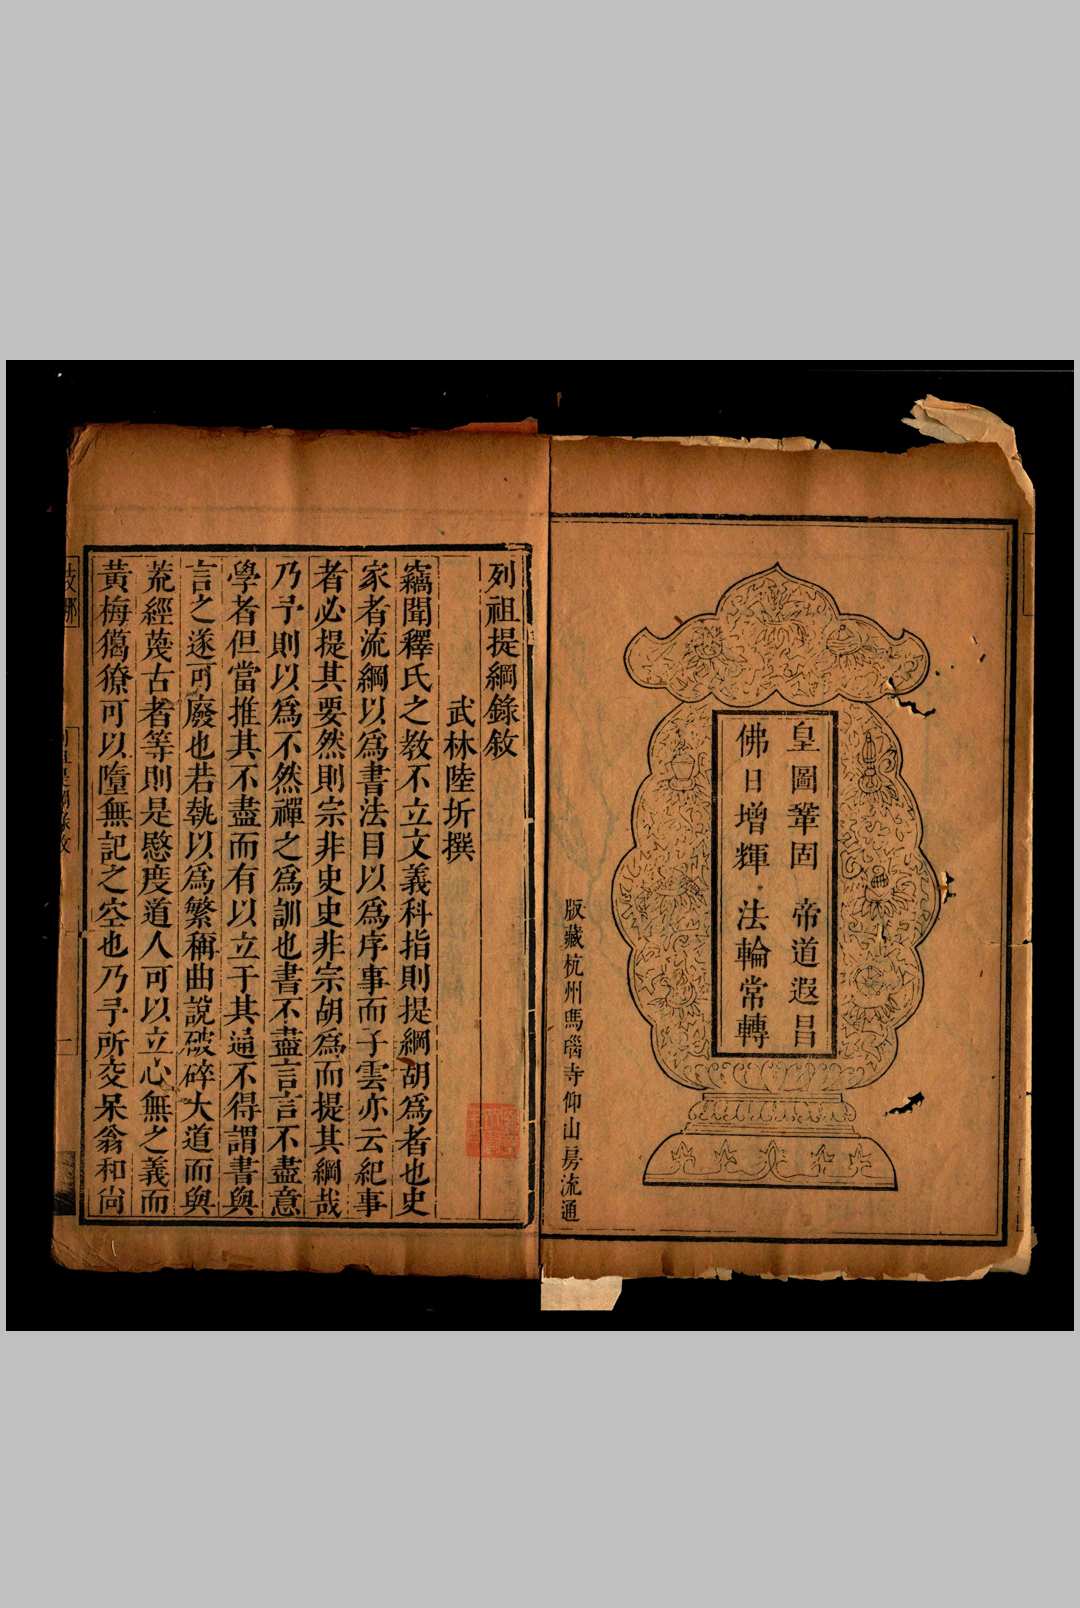 皇圖鞏固 帝道遐昌
佛日增輝 法輪常轉
版藏杭州瑪瑙寺仰山房流通
列祖提綱錄敘
武林陸圻撰
竊聞釋氏之教不立文義科指則提綱胡爲者也史
家者流綱以爲書法目以爲序事而子雲亦云紀事
者必提其要然則宗非史史非宗胡爲而提其綱哉
乃予則以爲不然禪之爲訓也書不盡言言不盡意
學者但當推其不盡而有以立于其通不得謂書與
言之遂可廢也若執以爲繁稱曲說破碎大道而與
荒經蔑古者等則是愍度道人可以立心無之義而
黃梅獦獠可以墮無記之空也乃予所交呆翁和尙